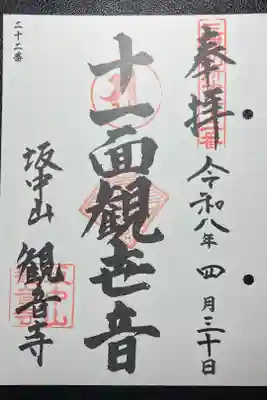 奉拝
令和八年四月三十日
十一面観世音
坂中山
観音寺
二十二番